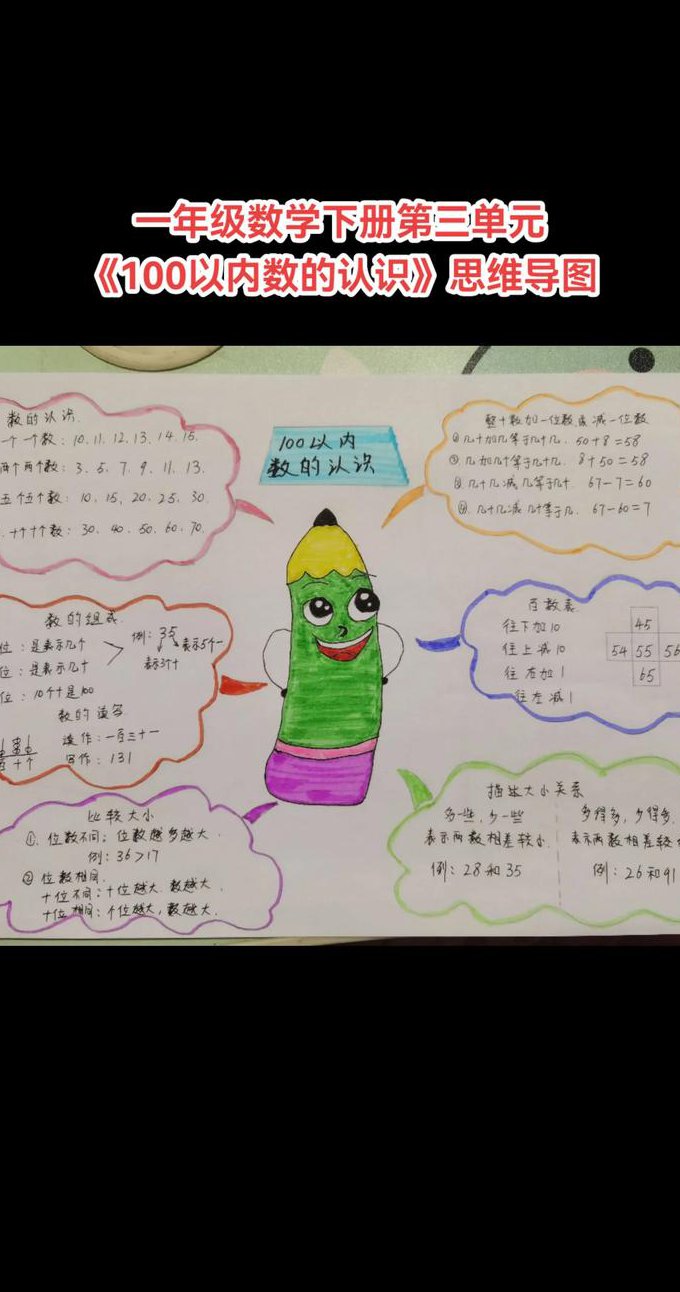 一年级数学下册第三单元
《100以内数的认识》思维导图
100以内
数的认识
数的认识.
一个一个数：10、11、12、13、14、15.
两个两个数：3、5、7、9、11、13.
五个五个数：10、15、20、25、30.
十个十个数：30、40、50、60、70.
数的组成.
位：是表示几个
位：是表示几十
位：10个十是100
例：35
表示5个一
表示3个十
数的读写
读作：一百三十一
写作：131
百十个
比较大小
①、位数不同：位数越多越大.
例：36>17
② 位数相同.
十位不同：十位越大，数越大.
十位相同：个位越大，数越大.
整十数加一位数或减一位数
① 几十加几等于几十几. 50+8=58
②、几加几十等于几十几. 8+50=58
③ 几十几减几等于几十 67-7=60
④、几十几减几十等于几. 67-60=7
百数表
往下加10
往上减10
往右加1
往左减1
45
54 55 56
65
描述大小关系
多一些，少一些
表示两数相差较小.
例：28和35
多得多，少得多.
表示两数相差较
例：26和91